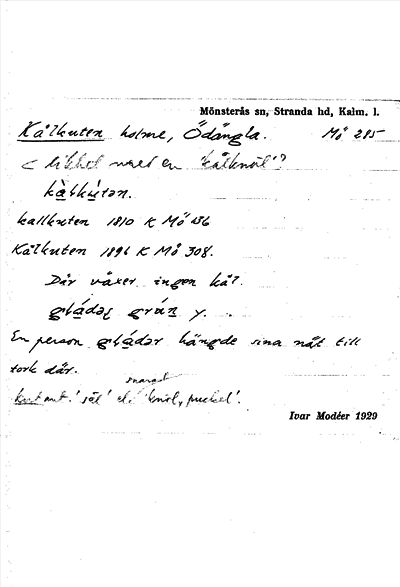 Mönsterås sn, Stranda hd, Kalm. l.
Kålkuten holme, Ödängla. Mö 285
< likhet med en 'kålknöl'?
kallkuten 1810 K Mö 136
Kålkuten 1896 K Mö 308.
Där växer ingen kål.
En person hängde sina nät till
tork där.
snarast
kut ant. 'säl' el. 'knöl, puckel'.
Ivar Modéer 1929